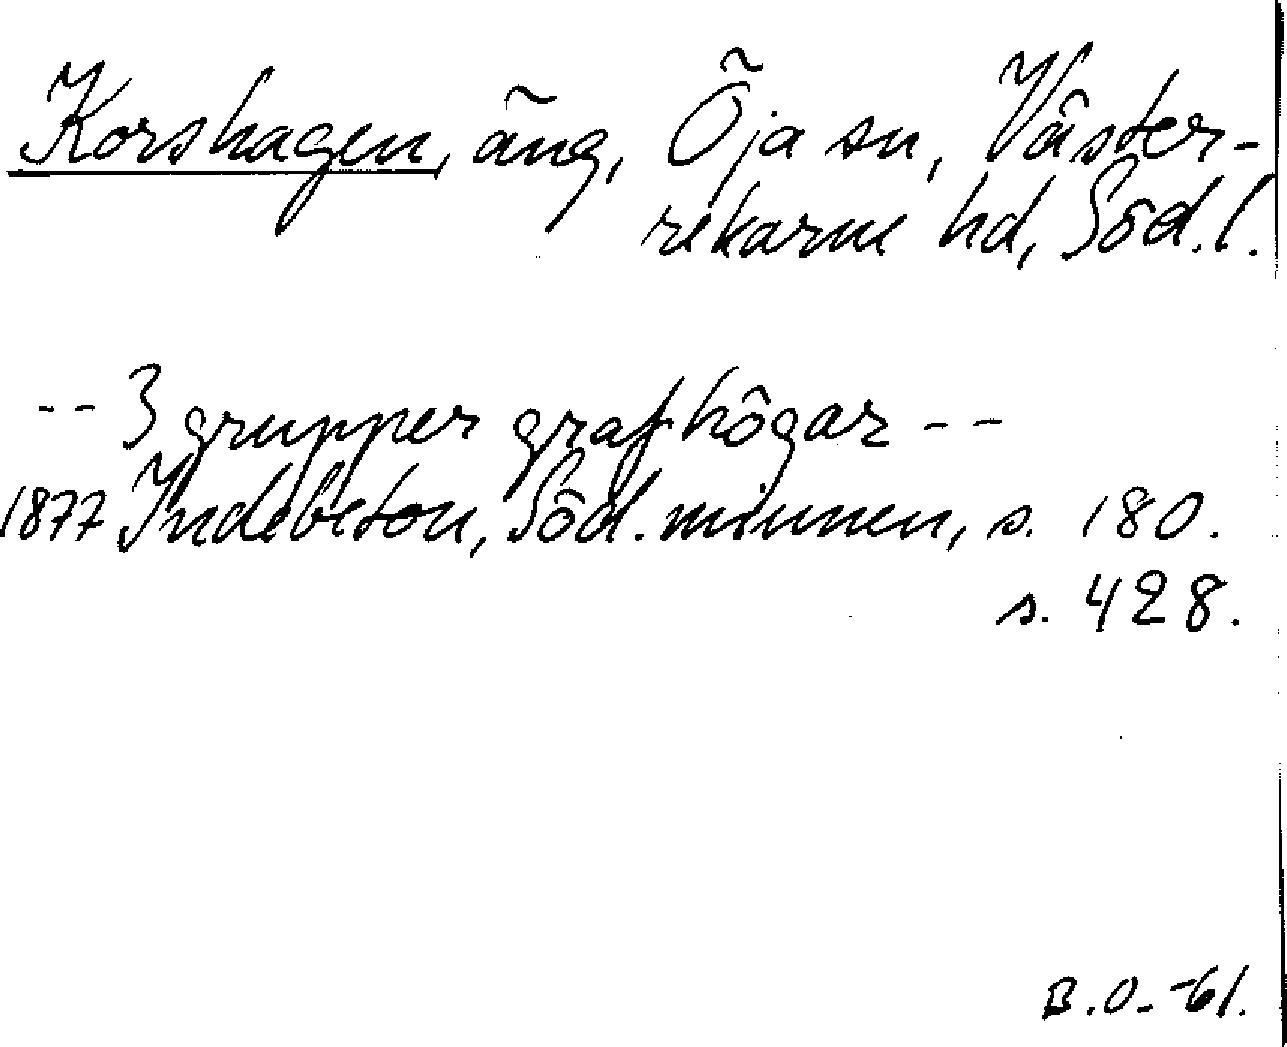 Korshagen, äng, Öja sn, Väster-
rekarne hd, Söd. l.
-- 3 grupper grafhögar --
1877 Indebetou, Söd. minnen, s. 180.
s. 428.
B.O. -61.